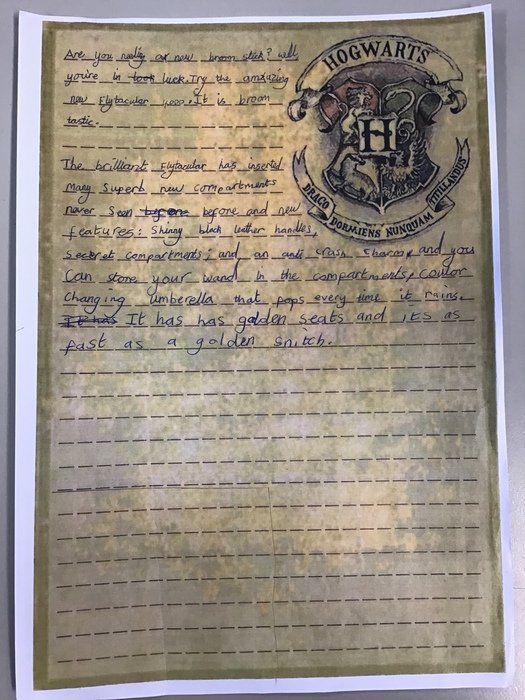 HOGWARTS
H
DRACO DORMIENS NUNQUAM TITILLANDUS
Are you really a new broom stick? well
you're in took luck. Try the amazing
new Flytacular . It is broom
tastic.
The brilliant Flytacular has inserted
Many Superb new compartments
never Seen before before and new
features: Shinny black leather handles,
secret compartments, and an anti crash charm, and you
Can store your wand in the compartments, coulor
Changing umberella that pops every time it rains.
It has It has has golden seats and its as
fast as a golden snitch.